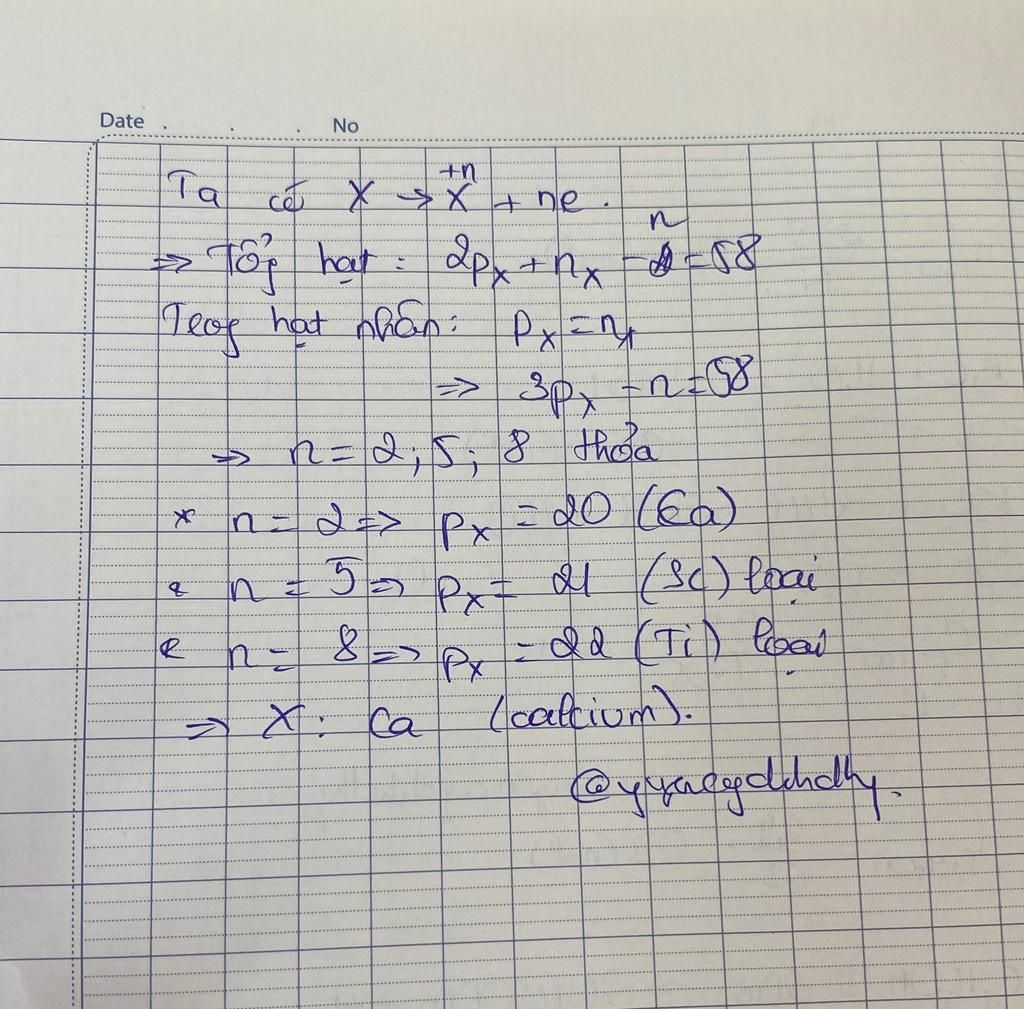 Date . . . No
Ta có X → X⁺ⁿ + ne.
⇒ Tổg hạt : 2pₓ + nₓ - n = 58
Trog hạt nhân: pₓ = nₓ
⇒ 3pₓ - n = 58
⇒ n = 2; 5; 8 thỏa
* n = 2 ⇒ pₓ = 20 (Ca)
* n = 5 ⇒ pₓ = 21 (Sc) loại
* n = 8 ⇒ pₓ = 22 (Ti) loại
⇒ X: Ca (calcium).